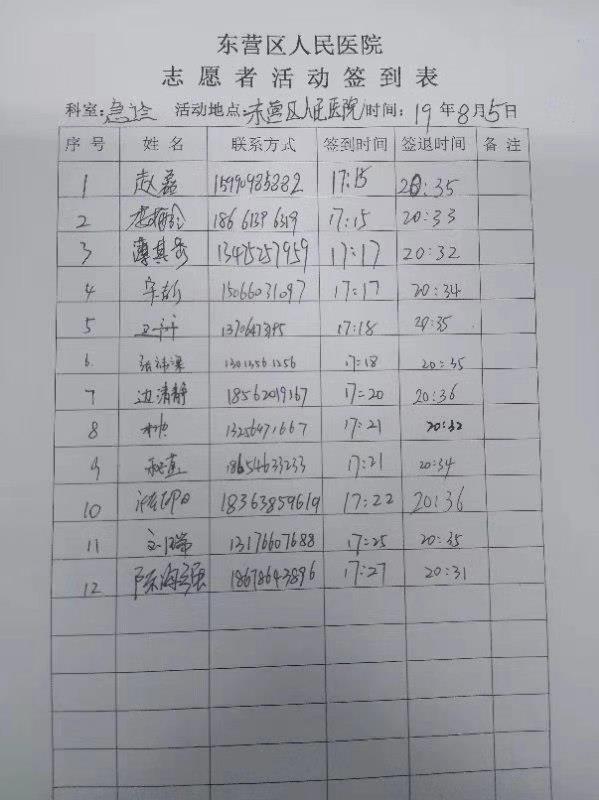 东营区人民医院
志愿者活动签到表
科室:急诊 活动地点:东营区人民医院 时间:19年8月5日
序号 姓名 联系方式 签到时间 签退时间 备注
1 赵磊 15990985882 17:15 20:35
2 186 6139 6319 17:15 20:33
3 薄其 13425257959 17:17 20:32
4 15066031097 17:17 20:34
5 17:18 20:35
6. 张 13013561256 17:18 20:35
7 边清静 18562019167 17:20 20:36
8 13256471667 17:21 20:32
9 18654633233 17:21 20:34
10 18363859619 17:22 20:36
11 13176607688 17:25 20:35
12 陈海强 18678643896 17:27 20:31